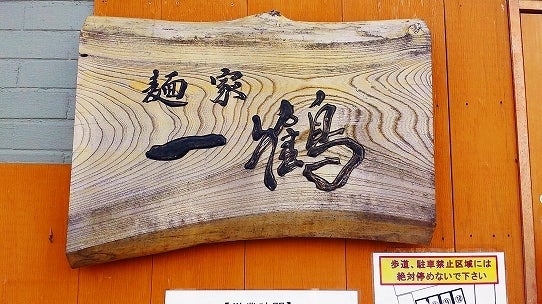 麺家
一鶴
歩道、駐車禁止区域には
絶対停めないで下さい